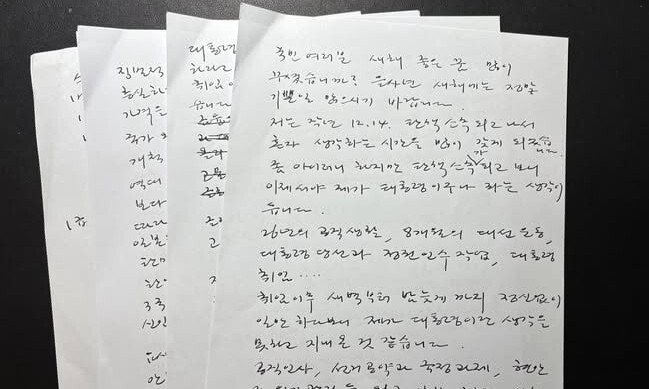 국민 여러분 새해 좋은 꿈 많이
꾸셨습니까? 을사년 새해에는 정말
기쁜 일 많으시기 바랍니다.
저는 작년 12.14. 탄핵 소추되고 나서
혼자 생각하는 시간을 많이 갖게 되었습니다.
좀 아이러니 하지만 탄핵소추가 되고 보니
이제서야 제가 대통령이구나 하는 생각이
듭니다.
26년의 공직생활, 8개월의 대선 운동,
대통령 당선과 정권인수 작업, 대통령
취임....
취임이후 새벽부터 밤늦게까지 정신없이
일만 하다보니 제가 대통령이란 생각을
못하고 지내온 것 같습니다.
공직인사, 선거공약과 국정과제, 현안
대통령
하라고
취임이
습니다
가격을
주가
역대
보다
따라
3국